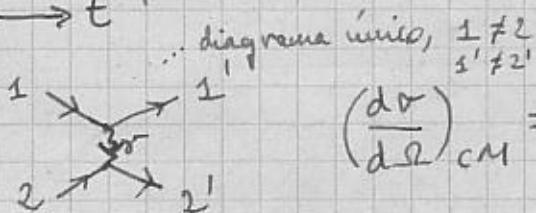 → t
... diagrama único, 1 ≠ 2
1' ≠ 2'
1 1'
γ
2 2'
(dσ/dΩ)CM =